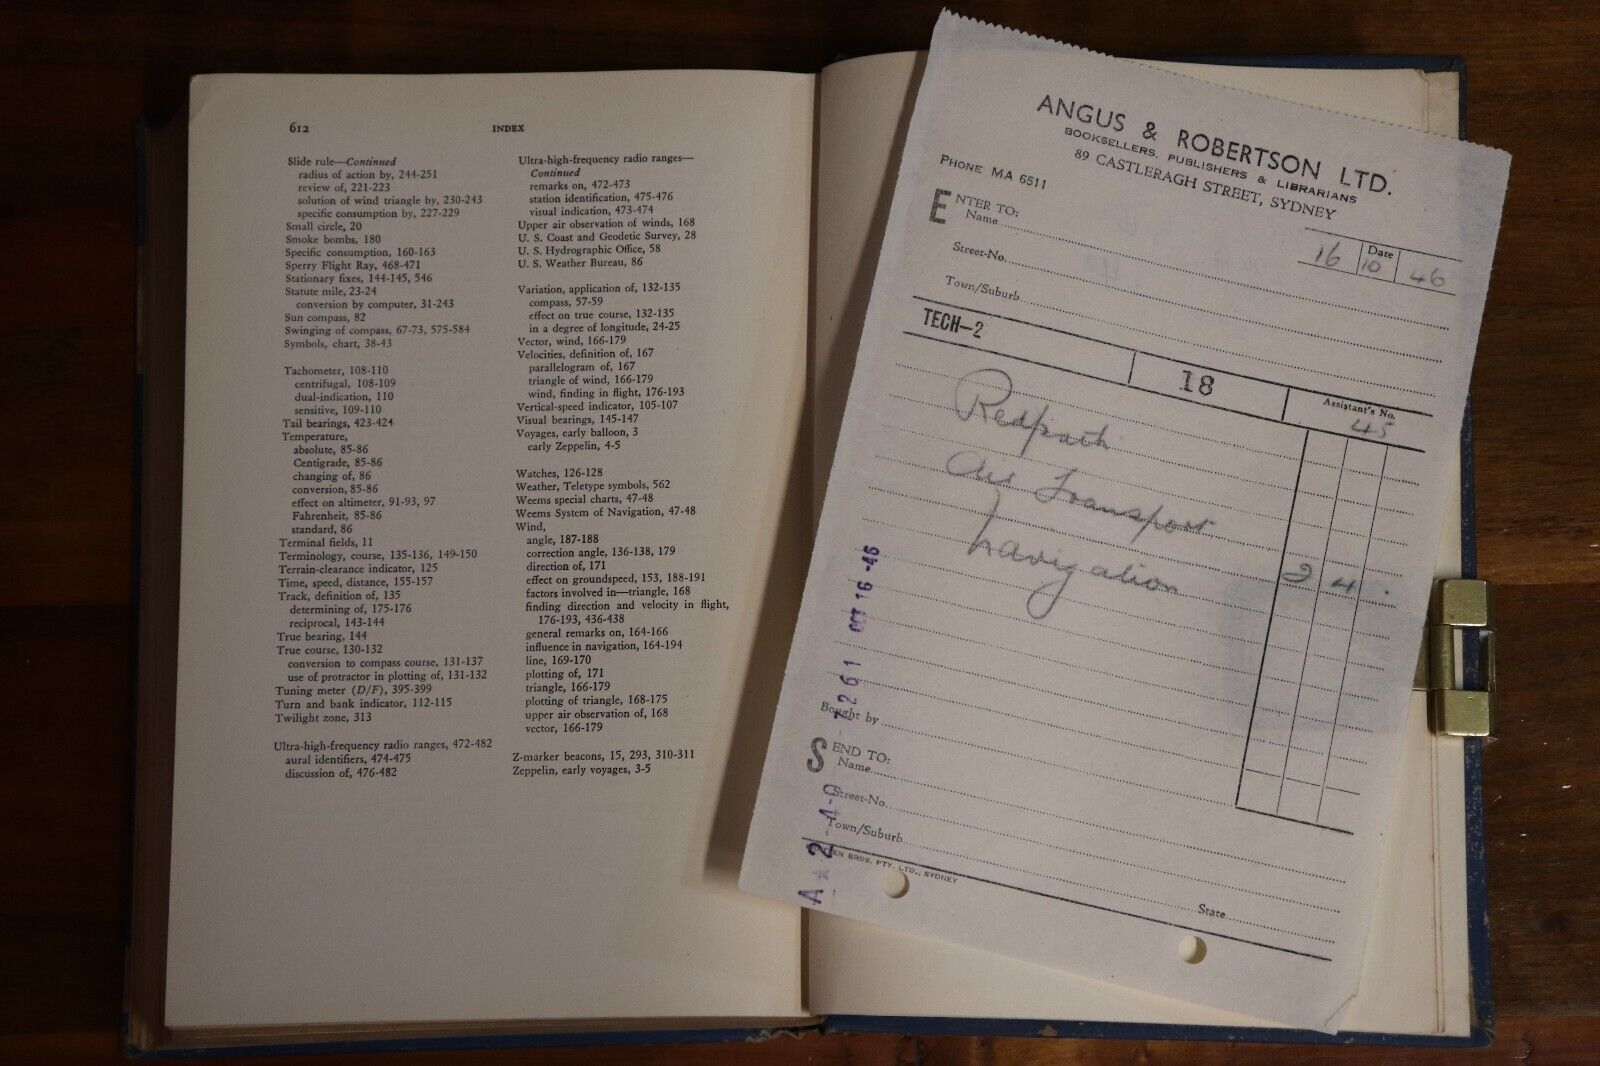 612
INDEX
Slide rule—Continued
radius of action by, 244-251
review of, 221-223
solution of wind triangle by, 230-243
specific consumption by, 227-229
Small circle, 20
Smoke bombs, 180
Specific consumption, 160-163
Sperry Flight Ray, 468-471
Stationary fixes, 144-145, 546
Statute mile, 23-24
conversion by computer, 31-243
Sun compass, 82
Swinging of compass, 67-73, 575-584
Symbols, chart, 38-43
Tachometer, 108-110
centrifugal, 108-109
dual-indication, 110
sensitive, 109-110
Tail bearings, 423-424
Temperature,
absolute, 85-86
Centigrade, 85-86
changing of, 86
conversion, 85-86
effect on altimeter, 91-93, 97
Fahrenheit, 85-86
standard, 86
Terminal fields, 11
Terminology, course, 135-136, 149-150
Terrain-clearance indicator, 125
Time, speed, distance, 155-157
Track, definition of, 135
determining of, 175-176
reciprocal, 143-144
True bearing, 144
True course, 130-132
conversion to compass course, 131-137
use of protractor in plotting of, 131-132
Tuning meter (D/F), 395-399
Turn and bank indicator, 112-115
Twilight zone, 313
Ultra-high-frequency radio ranges, 472-482
aural identifiers, 474-475
discussion of, 476-482
Ultra-high-frequency radio ranges—
Continued
remarks on, 472-473
station identification, 475-476
visual indication, 473-474
Upper air observation of winds, 168
U. S. Coast and Geodetic Survey, 28
U. S. Hydrographic Office, 58
U. S. Weather Bureau, 86
Variation, application of, 132-135
compass, 57-59
effect on true course, 132-135
in a degree of longitude, 24-25
Vector, wind, 166-179
Velocities, definition of, 167
parallelogram of, 167
triangle of wind, 166-179
wind, finding in flight, 176-193
Vertical-speed indicator, 105-107
Visual bearings, 145-147
Voyages, early balloon, 3
early Zeppelin, 4-5
Watches, 126-128
Weather, Teletype symbols, 562
Weems special charts, 47-48
Weems System of Navigation, 47-48
Wind,
angle, 187-188
correction angle, 136-138, 179
direction of, 171
effect on groundspeed, 153, 188-191
factors involved in—triangle, 168
finding direction and velocity in flight,
176-193, 436-438
general remarks on, 164-166
influence in navigation, 164-194
line, 169-170
plotting of, 171
triangle, 166-179
plotting of triangle, 168-175
upper air observation of, 168
vector, 166-179
Z-marker beacons, 15, 293, 310-311
Zeppelin, early voyages, 3-5
ANGUS & ROBERTSON LTD.
BOOKSELLERS, PUBLISHERS & LIBRARIANS
89 CASTLEREAGH STREET, SYDNEY
PHONE MA 6511
ENTER TO:
Name
Date
16 10 46
Street-No.
Town/Suburb
TECH-2
18
Assistant's No.
45
Redpath
Air Transport
navigation 2 4 .
Bought by
SEND TO:
Name
Street-No.
Town/Suburb
BROS. PTY. LTD., SYDNEY
State
OCT 16 -46